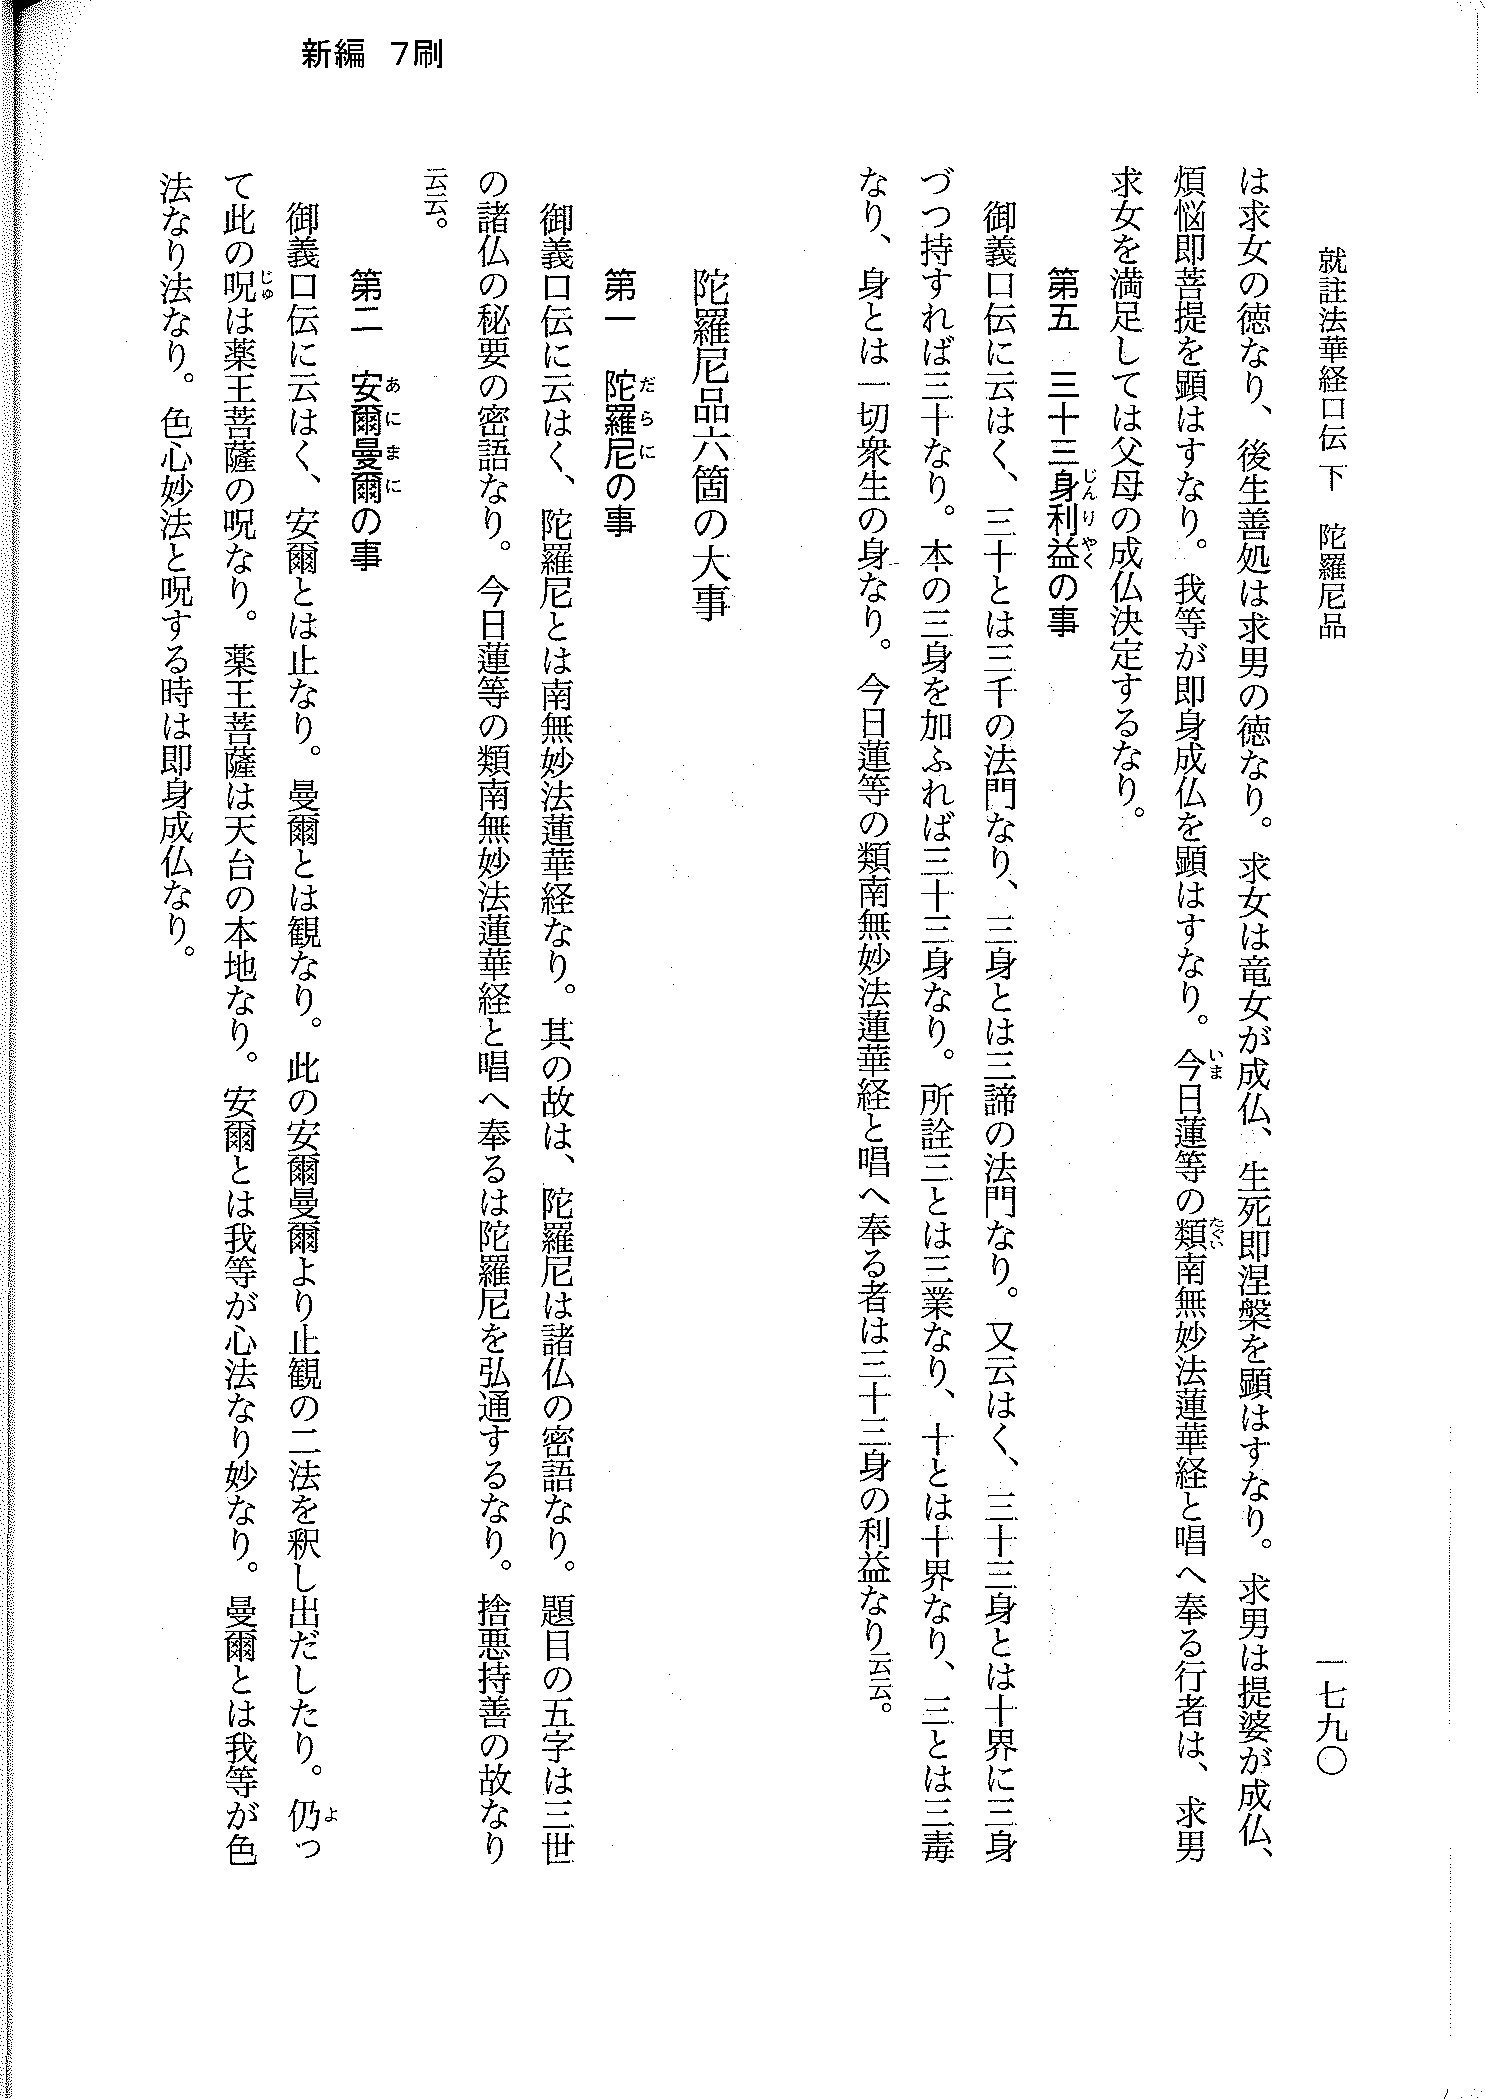 新編　7刷
就註法華経口伝 下　陀羅尼品　一七九〇
は求女の徳なり、後生善処は求男の徳なり。求女は竜女が成仏、生死即涅槃を顕はすなり。求男は提婆が成仏、
煩悩即菩提を顕はすなり。我等が即身成仏を顕はすなり。今日蓮等の類南無妙法蓮華経と唱へ奉る行者は、求男
求女を満足しては父母の成仏決定するなり。
第五　三十三身利益の事
御義口伝に云はく、三十とは三千の法門なり、三身とは三諦の法門なり。又云はく、三十三身とは十界に三身
づつ持すれば三十なり。本の三身を加ふれば三十三身なり。所詮三とは三業なり、十とは十界なり、三とは三毒
なり、身とは一切衆生の身なり。今日蓮等の類南無妙法蓮華経と唱へ奉る者は三十三身の利益なり云云。
陀羅尼品六箇の大事
第一　陀羅尼の事
御義口伝に云はく、陀羅尼とは南無妙法蓮華経なり。其の故は、陀羅尼は諸仏の密語なり。題目の五字は三世
の諸仏の秘要の密語なり。今日蓮等の類南無妙法蓮華経と唱へ奉るは陀羅尼を弘通するなり。捨悪持善の故なり
云云。
第二　安爾曼爾の事
御義口伝に云はく、安爾とは止なり。曼爾とは観なり。此の安爾曼爾より止観の二法を釈し出だしたり。仍っ
て此の呪は薬王菩薩の呪なり。薬王菩薩は天台の本地なり。安爾とは我等が心法なり妙なり。曼爾とは我等が色
法なり法なり。色心妙法と呪する時は即身成仏なり。